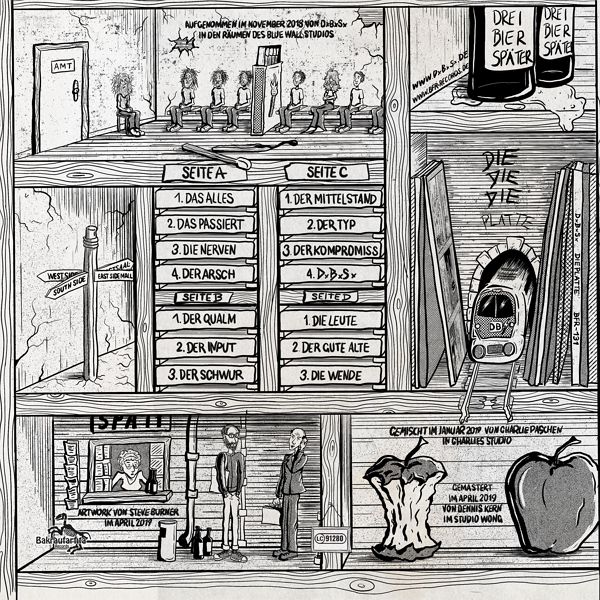 AUFGENOMMEN IM NOVEMBER 2018 VON DxBxSx
IN DEN RÄUMEN DES BLUE WALL STUDIOS
AMT
DREI
BIER
SPÄTER
DREI
BIER
SPÄTER
WWW.DxBxSx.DE
WWW.BFR-RECORDS.DE
SEITE A
1. DAS ALLES
2. DAS PASSIERT
3. DIE NERVEN
4. DER ARSCH
SEITE B
1. DER QUALM
2. DER INPUT
3. DER SCHWUR
SEITE C
1. DER MITTELSTAND
2. DER TYP
3. DER KOMPROMISS
4. DxBxSx
SEITE D
1. DIE LEUTE
2. DER GUTE ALTE
3. DIE WENDE
WEST SIDE
SOUTH SIDE
EAST SIDE MALL
DIE
DIE
DIE
PLATTE
DB
DxBxSx DIE PLATTE BFR-131
SPÄTI
ARTWORK VON STEVE BURNER
IM APRIL 2019
Bakraufarfita
Records
LC 91280
GEMISCHT IM JANUAR 2019 VON CHARLIE PASCHEN
IN CHARLIES STUDIO
GEMASTERT
IM APRIL 2019
VON DENNIS KERN
IM STUDIO WONG